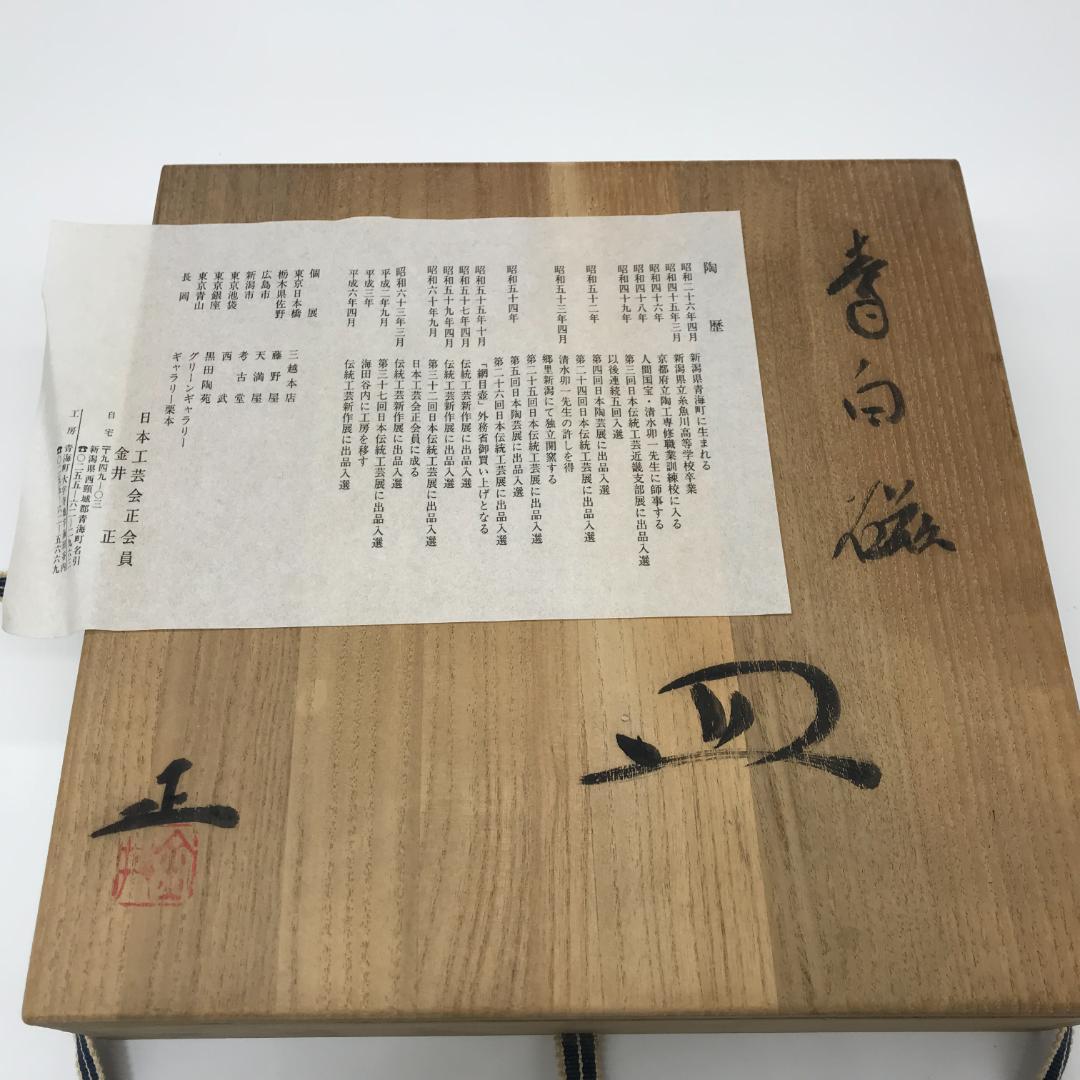 青白磁
皿
正
陶歴
昭和二十六年四月 新潟県青海町に生まれる
昭和四十五年三月 新潟県立糸魚川高等学校卒業
昭和四十六年 京都府立陶工専修職業訓練校に入る
昭和四十八年 人間国宝・清水卯一先生に師事する
昭和四十九年 第三回日本伝統工芸近畿支部展に出品入選
以後連続五回入選
昭和五十二年 第四回日本陶芸展に出品入選
第二十四回日本伝統工芸展に出品入選
昭和五十三年四月 清水卯一先生の許しを得
郷里新潟にて独立開窯する
第二十五回日本伝統工芸展に出品入選
昭和五十四年 第五回日本陶芸展に出品入選
第二十六回日本伝統工芸展に出品入選
昭和五十五年十月 「網目壺」外務省御買い上げとなる
昭和五十七年四月 伝統工芸新作展に出品入選
昭和五十九年四月 伝統工芸新作展に出品入選
昭和六十年九月 第三十二回日本伝統工芸展に出品入選
日本工芸会正会員に成る
昭和六十三年三月 伝統工芸新作展に出品入選
平成二年九月 第三十七回日本伝統工芸展に出品入選
平成三年 海田谷内に工房を移す
平成六年四月 伝統工芸新作展に出品入選
個展
東京日本橋 三越本店
栃木県佐野 藤野屋
広島市 天満屋
新潟市 考古堂
東京池袋 西武
東京銀座 黒田陶苑
東京青山 グリーンギャラリー
長岡 ギャラリー栗本
日本工芸会正会員
金井 正
自宅 〒九四九―〇三
新潟県西頸城郡青海町名引
☎〇二五五―六二―
工房 青海町大字
五六六九